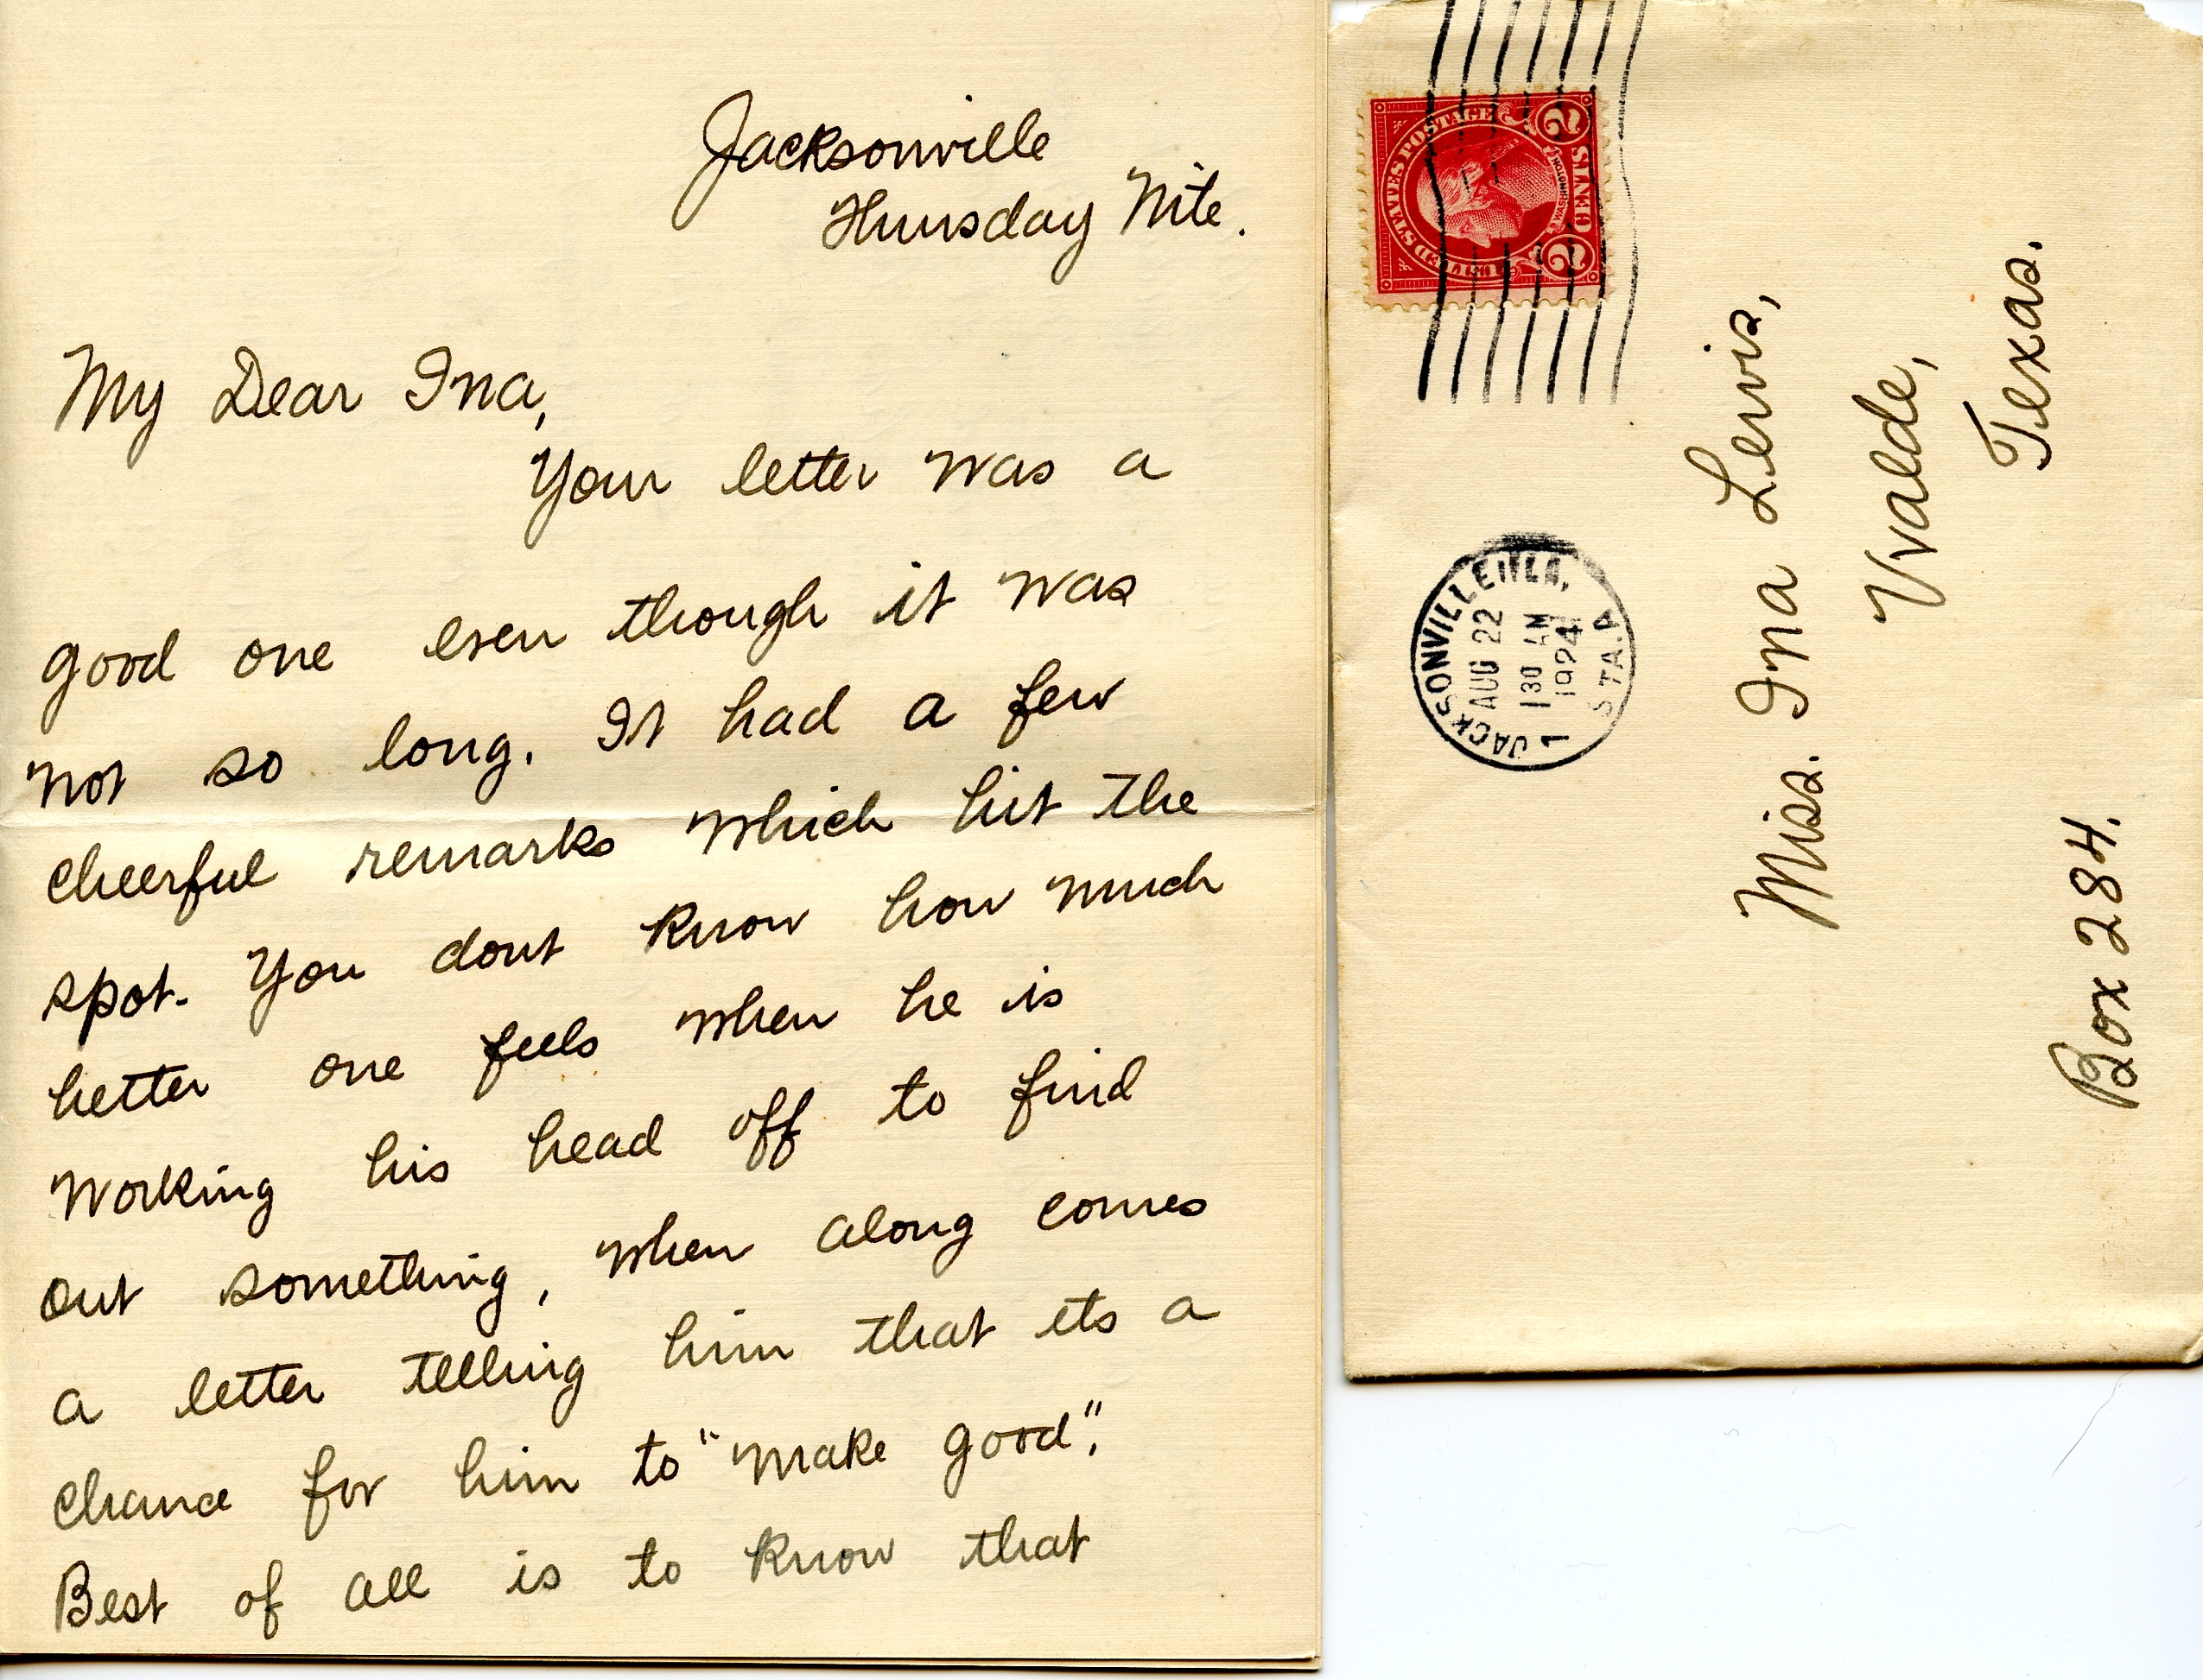 Jacksonville
Thursday Nite.
My Dear Ina,
Your letter was a
good one even though it was
not so long. It had a few
cheerful remarks which hit the
spot. You dont know how much
better one feels when he is
working his head off to find
out something, when along comes
a letter telling him that its a
chance for him to "make good".
Best of all is to know that
UNITED STATES POSTAGE
WASHINGTON
2 CENTS 2
JACKSONVILLE, FLA.
AUG 22
1 30 AM
1924
1 STA. A
Miss. Ina Lewis,
Uvalde,
Texas.
Box 284.